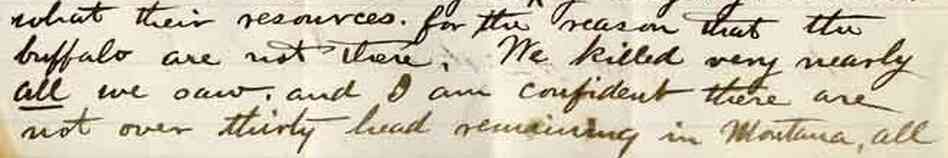 what their resources. for the reason that the
buffalo are not there. We killed very nearly
all we saw. and I am confident there are
not over thirty head remaining in Montana, all